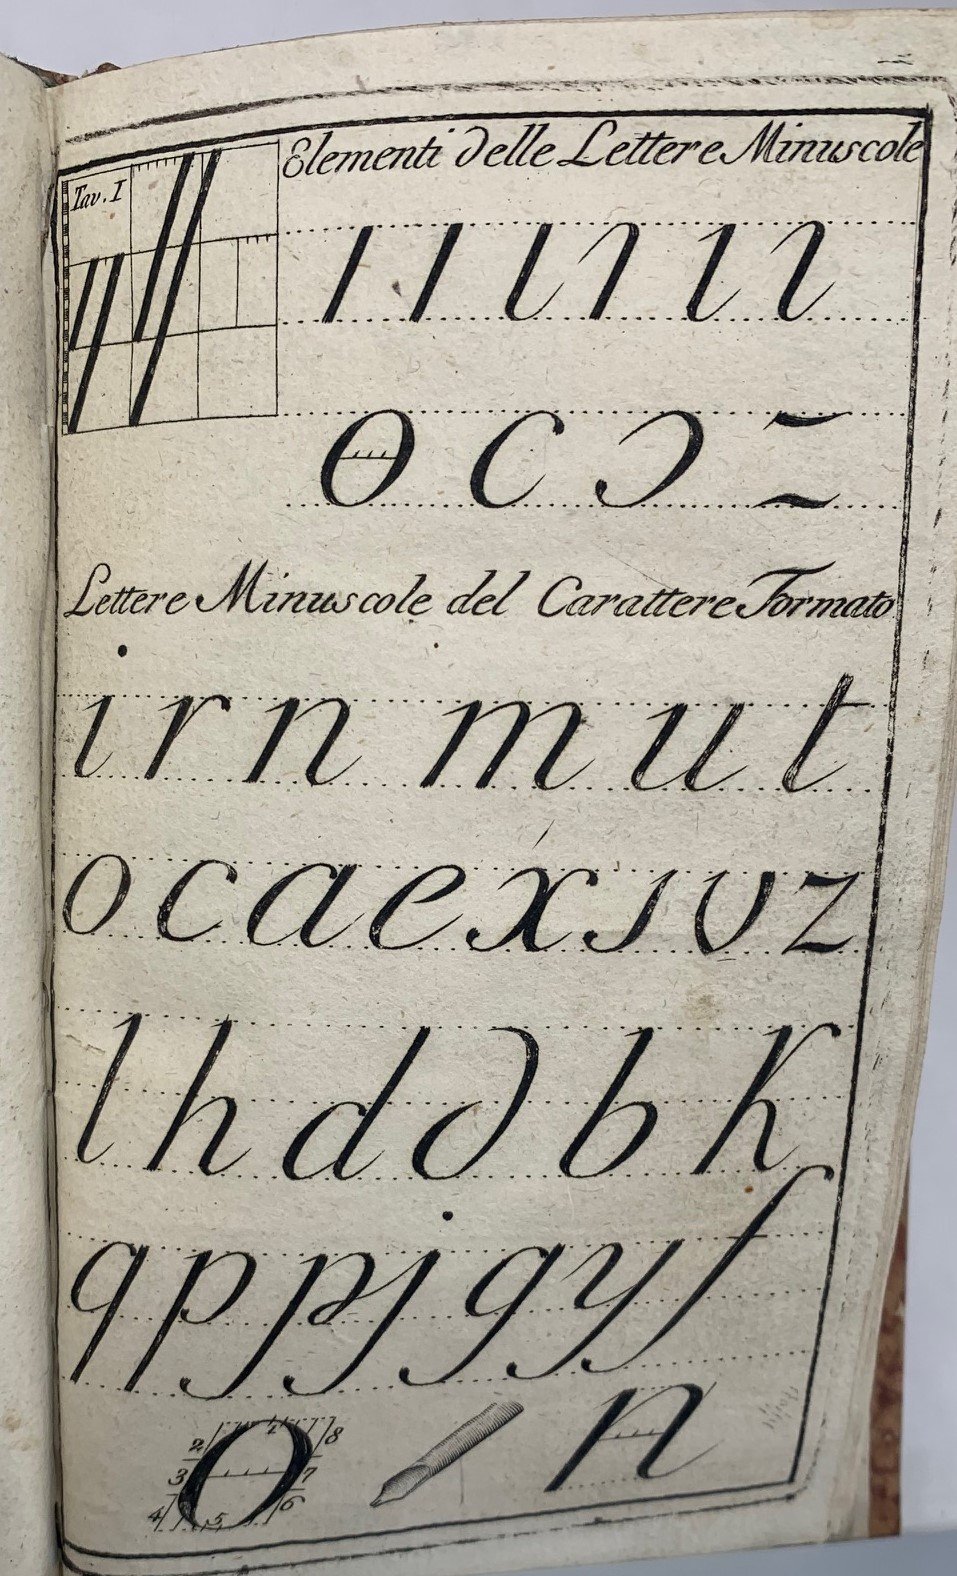 Tav. I
Elementi delle Lettere Minuscole
ı ı ı ı ı ı
o c ɔ
Lettere Minuscole del Carattere Formato
i r n m u t
o c a e x s v z
l h d ∂ b k
q p p j g y f
1
2 8
3 7
4 5 6
O n